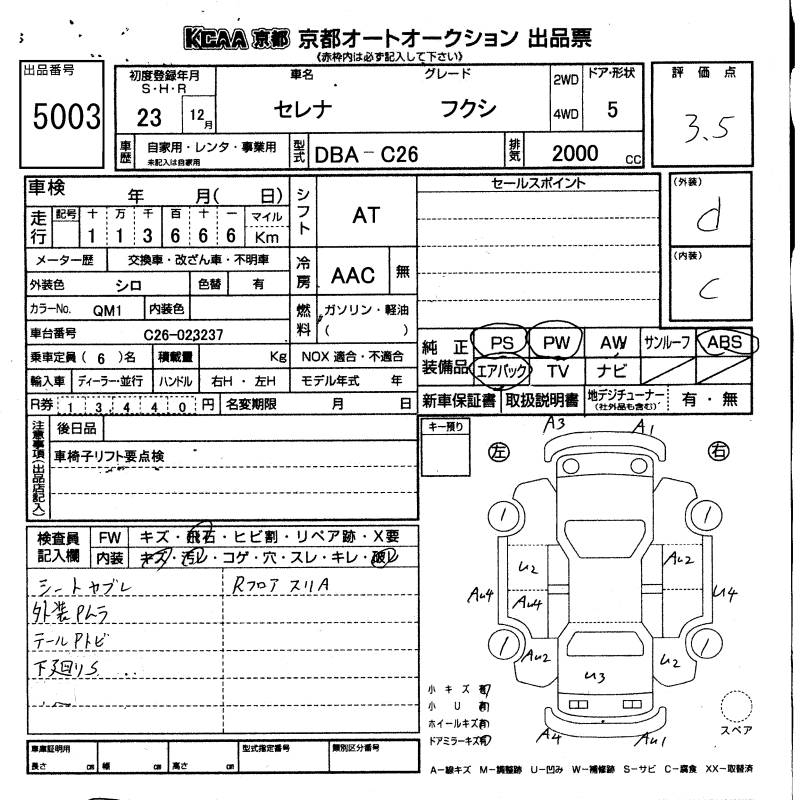 KCAA 京都 京都オートオークション 出品票
《赤枠内は必ず記入して下さい》
出品番号
5003
初度登録年月
S・H・R
23 12月
車名 グレード
セレナ フクシ
2WD
4WD
ドア・形状
5
評価点
3.5
車歴 自家用・レンタ・事業用
未記入は自家用
型式 DBA-C26
排気 2000 cc
車検 年 月( 日)
走行 記号 十 万 千 百 十 一 マイル
1 1 3 6 6 6 Km
メーター歴 交換車・改ざん車・不明車
外装色 シロ 色替 有
カラーNo. QM1 内装色
車台番号 C26-023237
乗車定員 ( 6 )名 積載量 Kg
輸入車 ディーラー・並行 ハンドル 右H・左H
R券 13,440 円 名変期限 月 日
シフト AT
冷房 AAC 無
燃料 ガソリン・軽油
( )
NOX 適合・不適合
モデル年式 年
セールスポイント
(外装)
d
(内装)
C
純正装備品 PS PW AW サンルーフ ABS
エアバック TV ナビ
新車保証書 取扱説明書 地デジチューナー
(社外品も含む) 有・無
注意事項(出品店記入)
後日品
車椅子リフト要点検
キー預り
検査員記入欄
FW キズ・飛石・ヒビ割・リペア跡・X要
内装 キズ・汚レ・コゲ・穴・スレ・キレ・破レ
シートヤブレ RフロアスリA
外装Pムラ
テールPトビ
下廻りS
左 右
A3 A1
1 1
U2 Au2
Au4 Au4 U4
1 1
Au2 U2
U3
A4 Au1
小キズ有
小U有
ホイールキズ有
ドアミラーキズ有
スペア
車庫証明用
長さ cm 幅 cm 高さ cm
型式指定番号 類別区分番号
A-線キズ M-調整跡 U-凹み W-補修跡 S-サビ C-腐食 XX-取替済